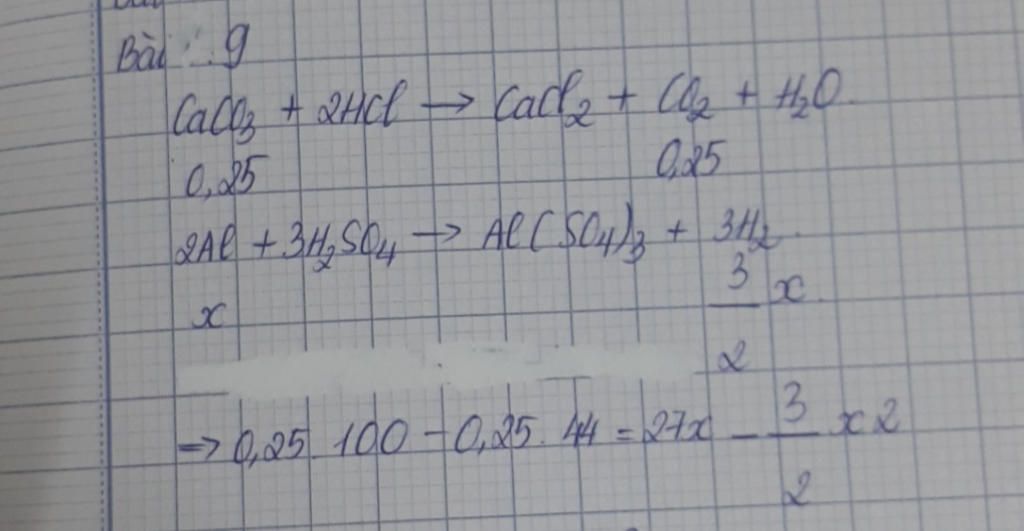 Bài : 9
CaCO₃ + 2HCl → CaCl₂ + CO₂ + H₂O
0,25 0,25
2Al + 3H₂SO₄ → Al(SO₄)₃ + 3H₂
x 3/2 x
⇒ 0,25.100 - 0,25.44 = 27x - 3/2 x 2